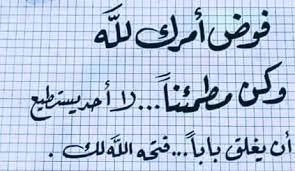 فوض أمرك للّه
وكن مطمئناً...لا أحد يستطيع
أن يغلق باباً...فتحه اللّه لك .